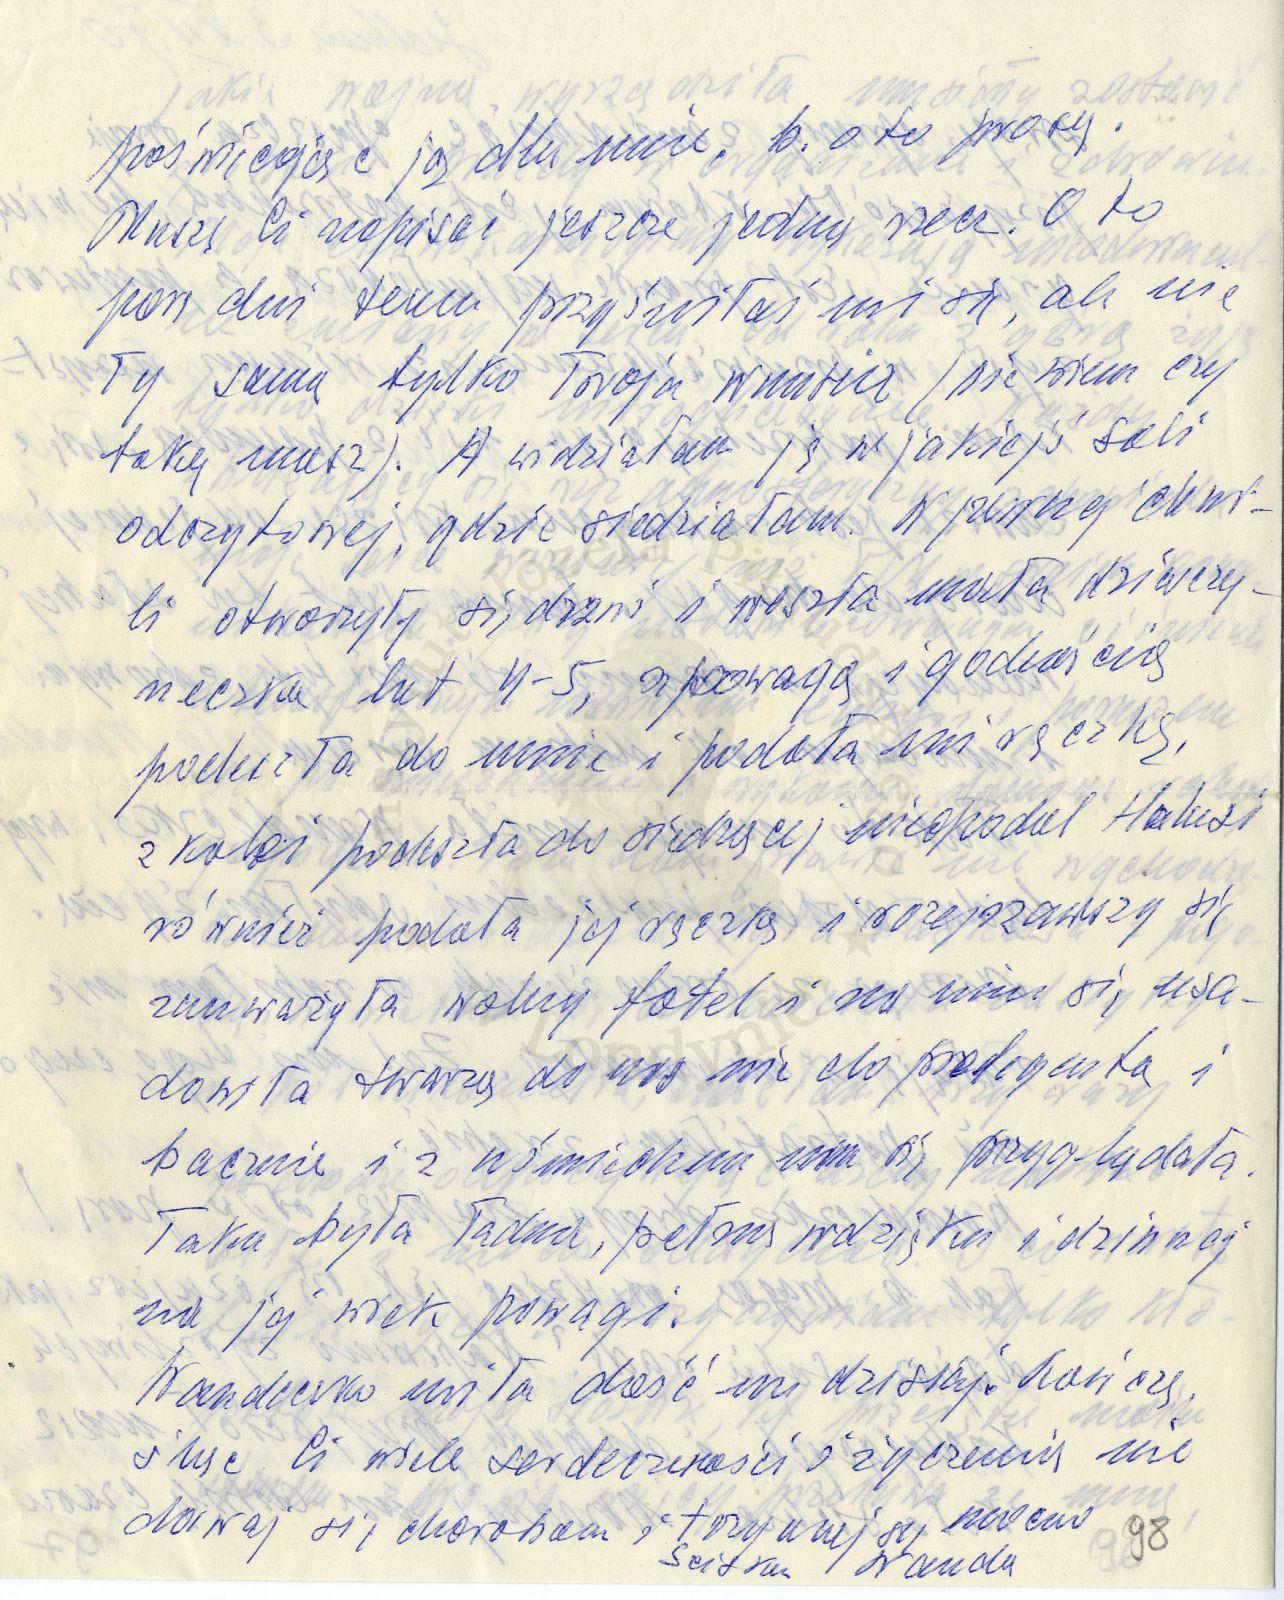 poświęcając ją dla mnie. b. o to proszę.
Muszę Ci napisać jeszcze jedną rzecz. O to
parę dni temu przyśniłaś mi się, ale nie
Ty sama tylko Twoja wnusia (nie wiem czy
taką masz). A widziałam ją w jakiejś sali
odczytowej, gdzie siedziałam. W pewnej chwi-
li otworzyły się drzwi i weszła mała dziewczy-
neczka lat 4-5, z powagą i godnością
podeszła do mnie i podała mi rączkę,
z kolei podeszła do siedzącej nieopodal Halusi
również podała jej rączkę i rozejrzawszy się
zauważyła wolny fotel i na nim się usa-
dowiła twarzą do nas nie do prelegenta i
bacznie i z uśmiechem nam się przyglądała.
Taka była ładna, pełna wdzięku i dziwnej
na jej wiek powagi.
Wandeczko miła dość na dzisiaj. Kończę,
śląc Ci wiele serdeczności i życzenia nie
dawaj się chorobom i trzymaj się mocno
Ściskam Wanda
98
Instytut Józefa Piłsudskiego
Londynie